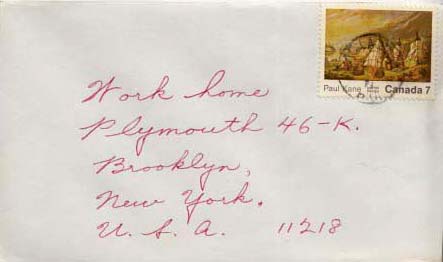 Paul Kane Canada 7
Work home
Plymouth 46-K.
Brooklyn,
New York.
U. S. A. 11218